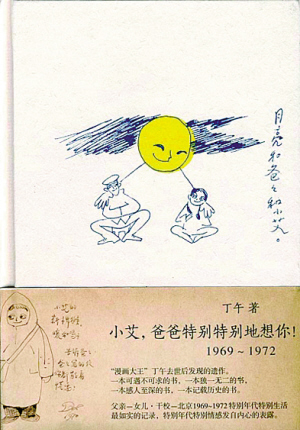 月亮和爸爸和小艾。
丁午 著
小艾，爸爸特别特别地想你！
1969～1972
“漫画大王”丁午去世后发现的遗作。
一本可遇不可求的书，一本独一无二的书，
一本感人至深的书，一本记载历史的书。
父亲—女儿·干校—北京1969-1972特别年代特别生活
最如实的记录，特别年代特别情感发自内心的表露。
小艾的